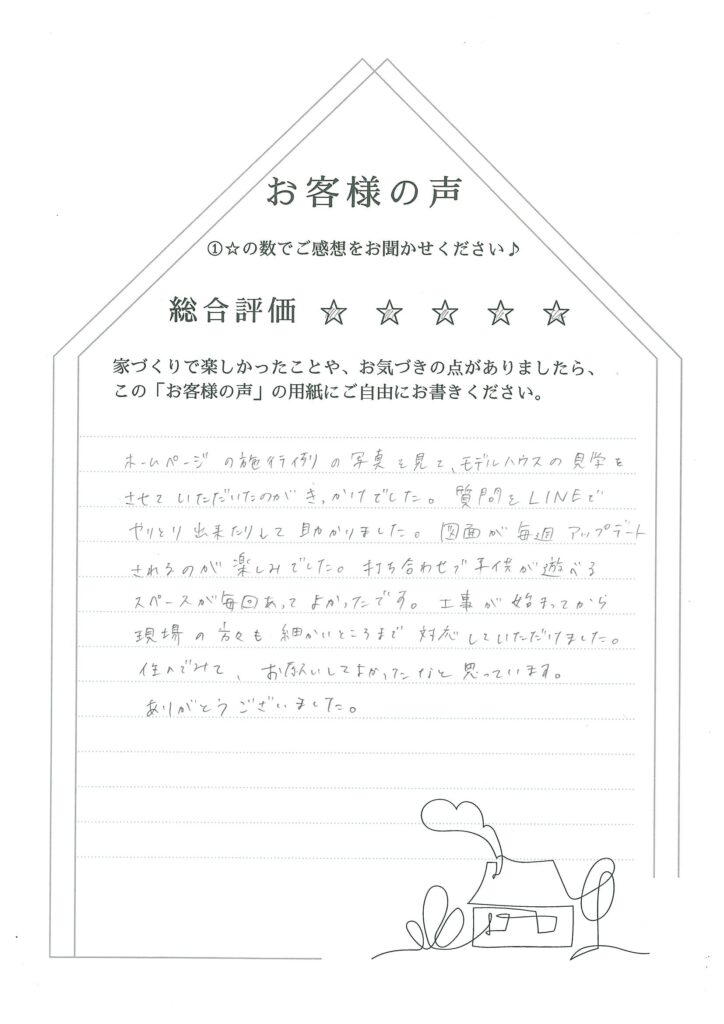 お客様の声
①☆の数でご感想をお聞かせください♪
総合評価 ☆ ☆ ☆ ☆ ☆
家づくりで楽しかったことや、お気づきの点がありましたら、
この「お客様の声」の用紙にご自由にお書きください。
ホームページの施行例の写真を見て、モデルハウスの見学を
させていただいたのがきっかけでした。質問をLINEで
やりとり出来たりして助かりました。図面が毎週アップデート
されるのが楽しみでした。打ち合わせで子供が遊べる
スペースが毎回あってよかったです。工事が始まってから
現場の方々も細かいところまで対応していただけました。
住んでみて、お願いしてよかったなと思っています。
ありがとうございました。